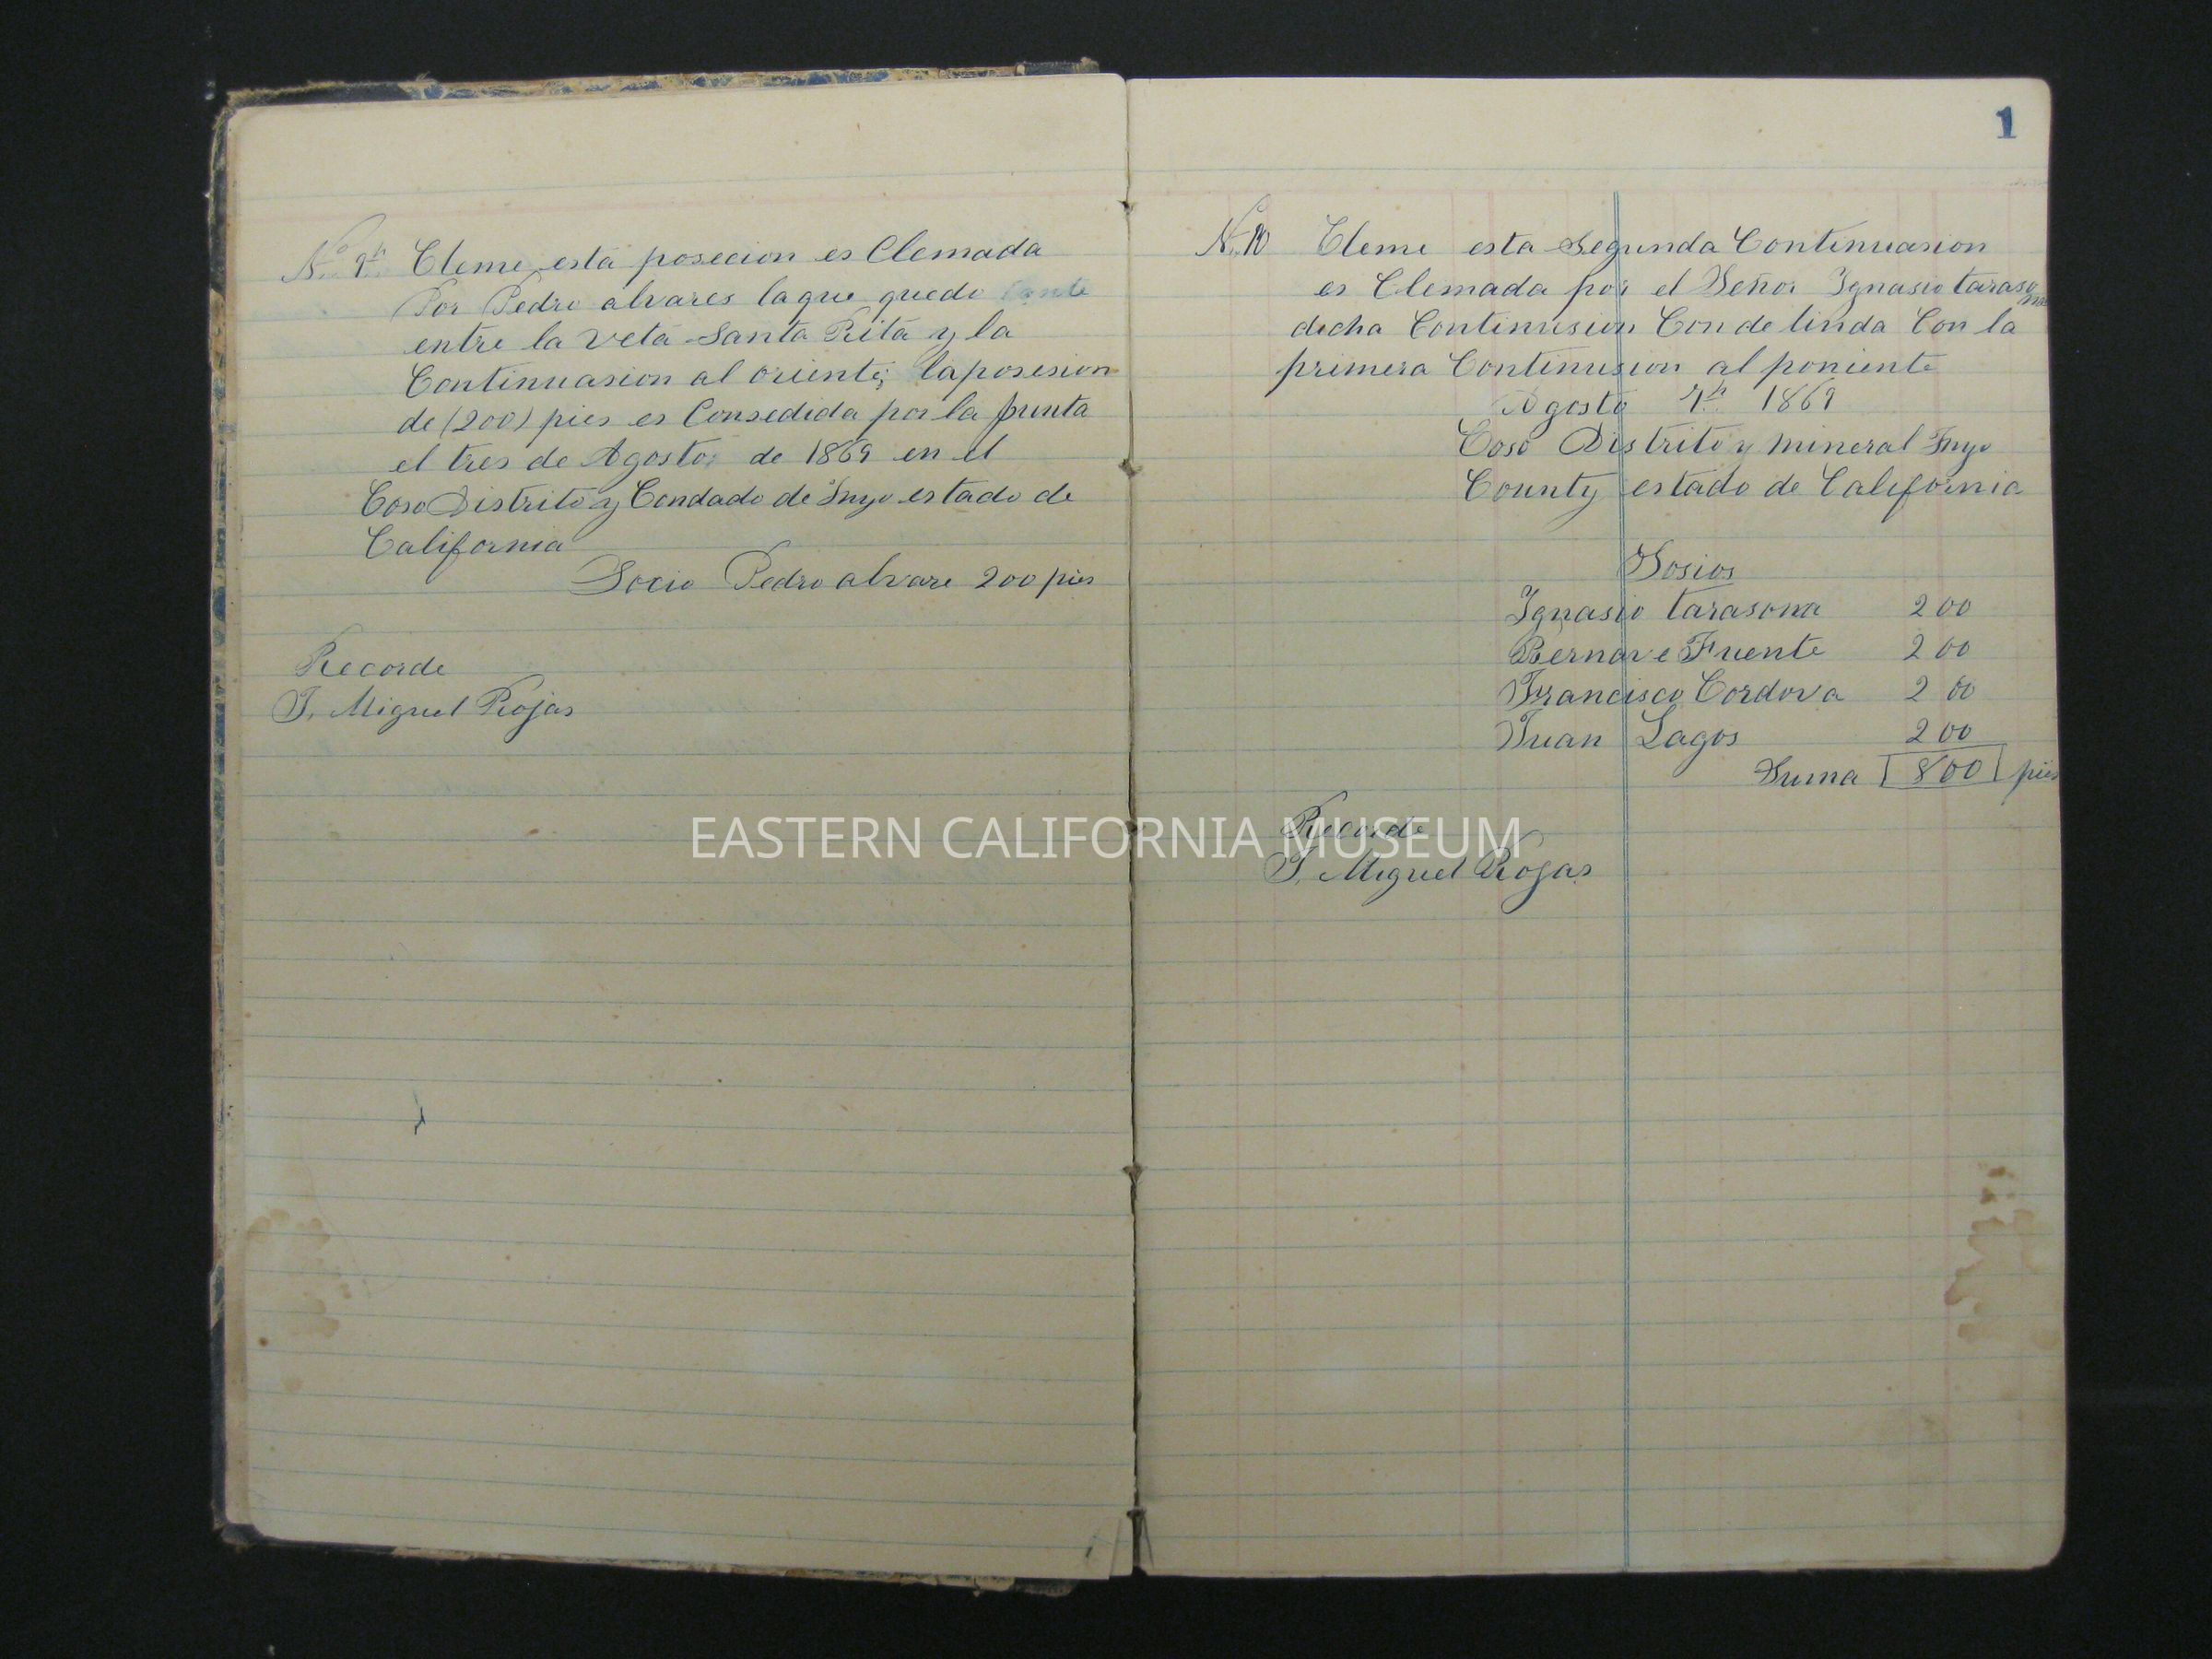 No. 9th Cleme esta posecion es Clemada
Por Pedro alvares la que quedo
entre la veta Santa Rita y la
Continuasion al oriente; la posesion
de (200) pies es Consedida por la junta
el tres de Agosto de 1869 en el
Coso Distrito y Condado de Inyo estado de
California
Socio Pedro alvare 200 pies
Recorde
J. Miguel Rojas
1
No. 10 Cleme esta Segunda Continuasion
es Clemada por el Señor Ignasio tarasona
decha Continusion Con de linda Con la
primera Continusion al poniente
Agosto 1869
Coso Distrito y mineral Inyo
County estado de California
Sosios
Ignasio tarasona 200
Bernave Fuente 200
Francisco Cordova 200
Juan Lagos 200
Suma 800 pies
Recorde
J. Miguel Rojas
EASTERN CALIFORNIA MUSEUM